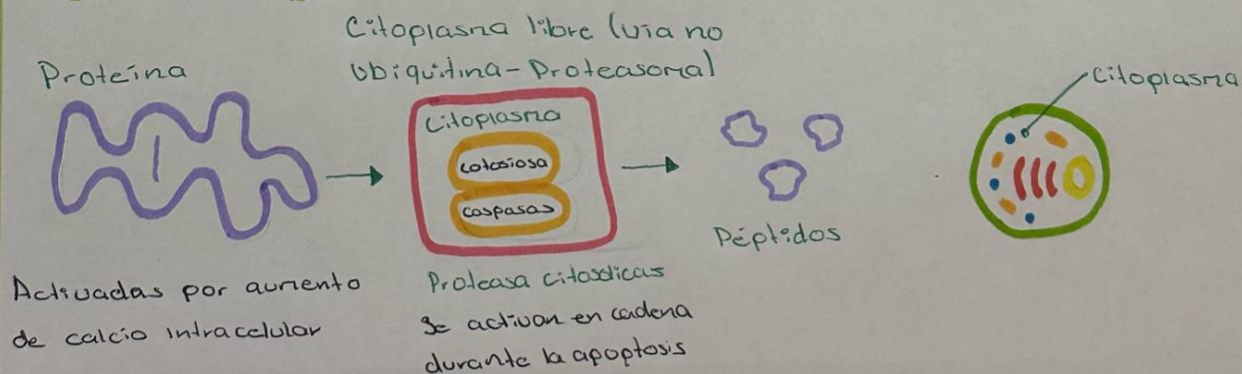 Citoplasma libre (vía no
Ubiquitina-Proteasomal
Proteína
Citoplasma
Citoplasma
caspasas
Péptidos
Activadas por aumento
de calcio intracelular
Proteasa citosólicas
Se activan en cadena
durante la apoptosis